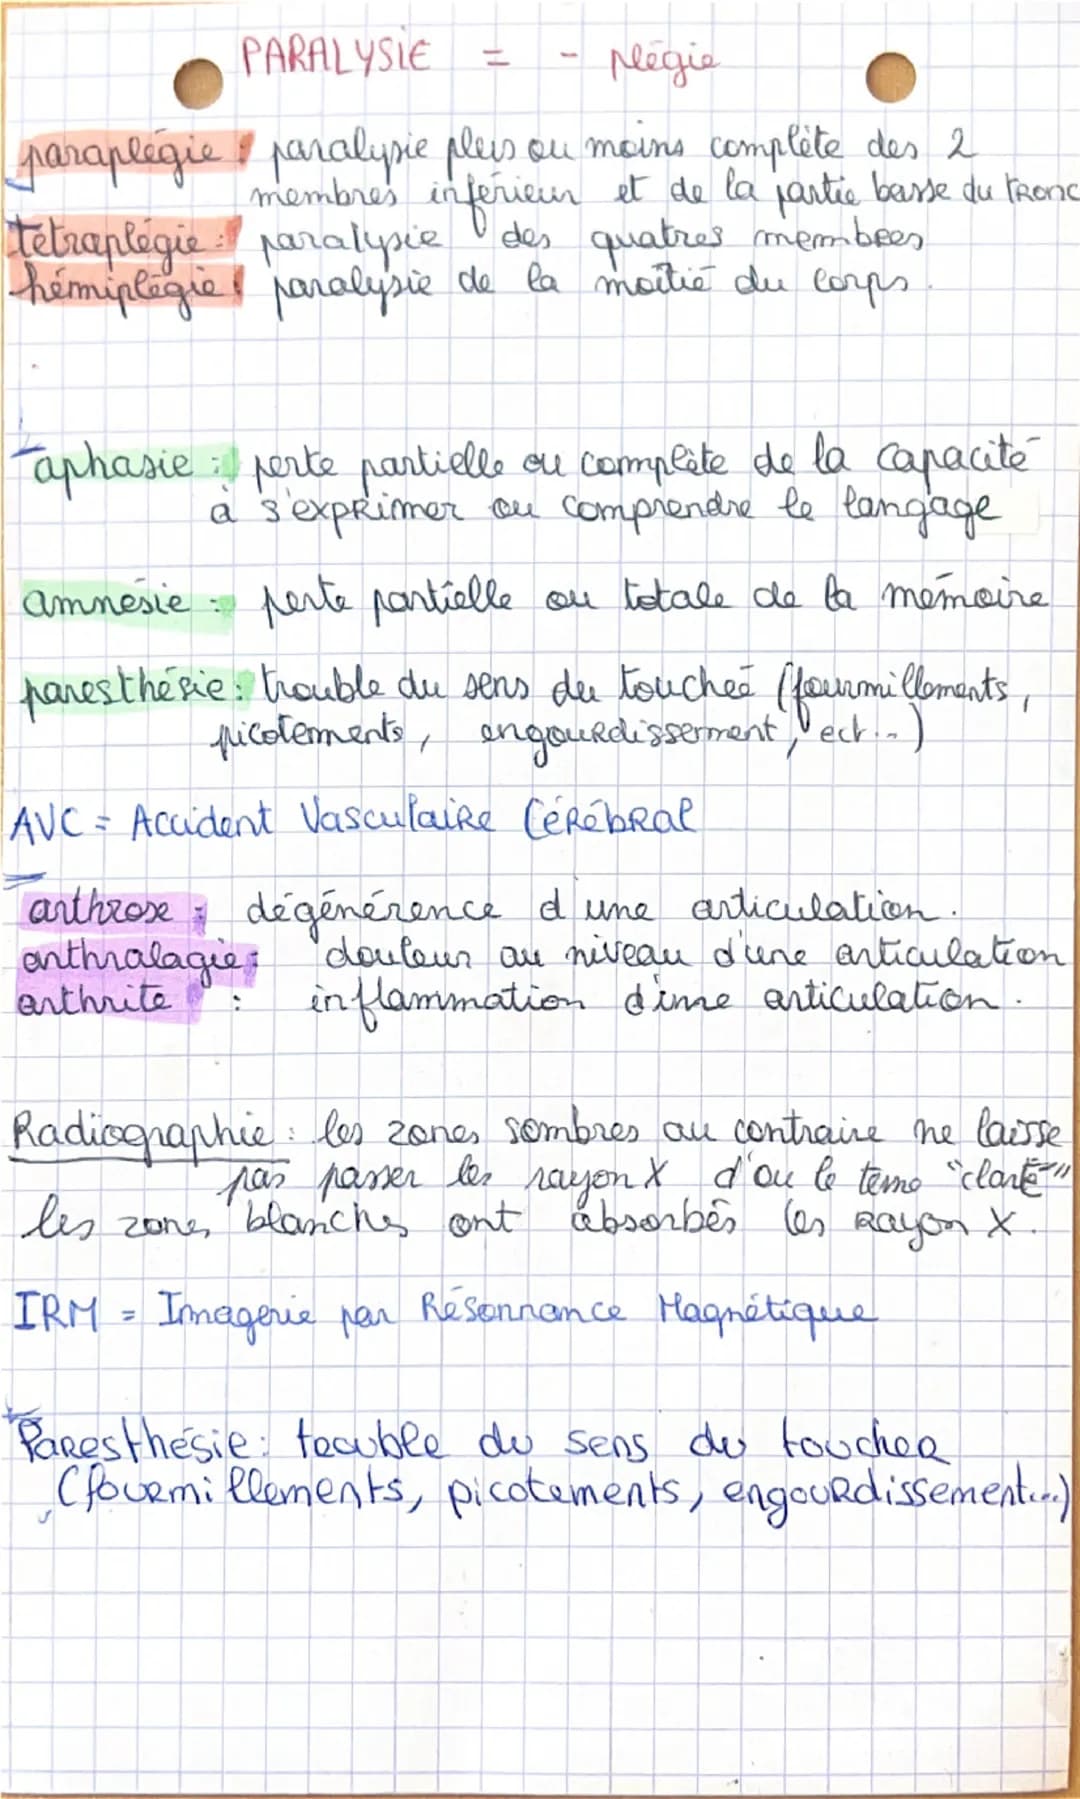 PARALYSIE = - plégie
paraplégie : paralysie plus ou moins complète des 2
membres inférieur et de la partie basse du tronc
tétraplégie : paralysie des quatres membres
hémiplégie : paralysie de la moitié du corps.
aphasie : perte partielle ou complète de la capacité
à s'exprimer ou comprendre le langage
amnésie : perte partielle ou totale de la mémoire
paresthésie : trouble du sens du toucher (fourmillements,
picotements, engourdisserment, ect...)
AVC = Accident Vasculaire Cérébral
arthrose : dégénérence d'une articulation.
arthralagie : douleur au niveau d'une articulation
arthrite : inflammation d'une articulation.
Radiographie : les zones sombres au contraire ne laisse
pas passer les rayon X d'ou le terme "clarté"
les zones blanches ont absorbés les rayon X.
IRM = Imagerie par Résonnance Magnétique
Paresthésie : trouble du sens du toucher
(fourmillements, picotements, engourdissement...)